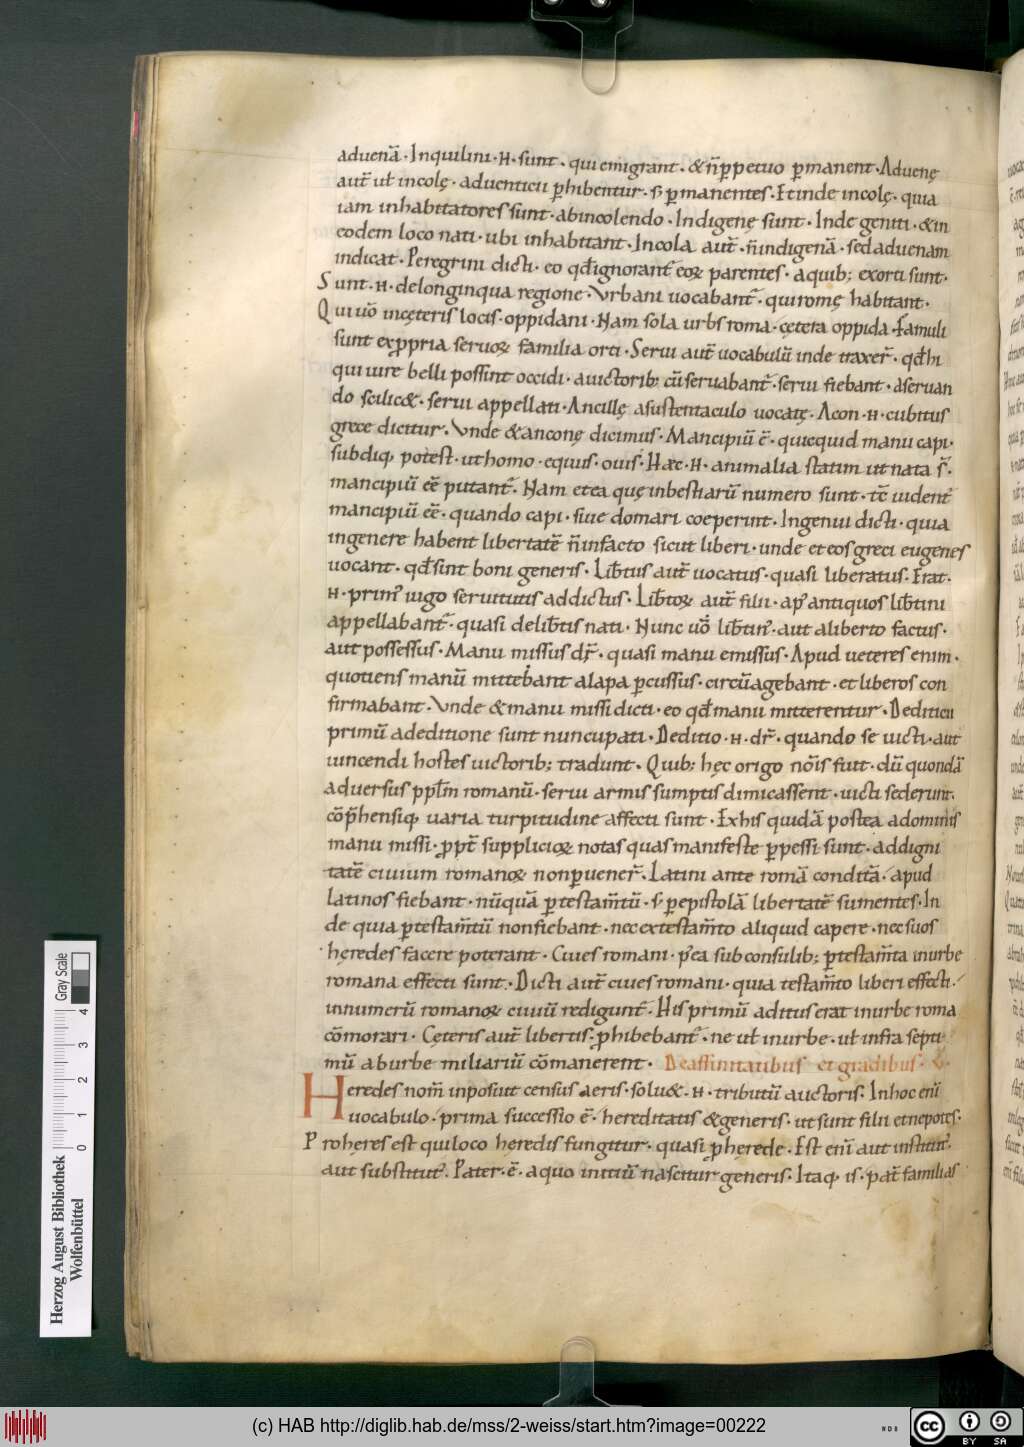 aduenā · Inquilini · H · sunt · qui emigrant · & n̄ p̱petuo p̱manent · Aduenę
aut̄ ut̄ incolę · aduenticii p̱hibentur · s; p̱manentes · Et inde incolę · quia
iam inhabitatores sunt · abincolendo · Indigenę sunt · Inde geniti · & in
eodem loco nati · ubi inhabitant · Incola aut̄ · n̄ indigenā · sed aduenam
indicat · Peregrini dicti · eo qd̄ ignorant̄ eoꝝ parentes · aquib; exorti sunt ·
Sunt · H · delonginqua regione · Vrbani uocabant̄ · qui romę habitant ·
Qui uō incęteris locis · oppidani · Nam sola urbs roma · cętera oppida · Famuli
sunt exp̱pria seruoꝝ familia orti · Serui aut̄ uocabulū inde traxer̄ · qd̄ hi
qui iure belli possint occidi · auictorib; cū seruabant̄ · serui fiebant · aseruan
do scilic& · serui appellati · Ancillę asustentaculo uocatę · Acon · H · cubitus
grece dicitur · Vnde & anconę dicimus · Mancipiū ē · quicquid manu capi ·
subdiq; potest · ut homo · equus · ouis · Hæc · H · animalia statim ut nata s̄ ·
mancipiū eē putant̄ · Nam et ea quę inbestiarū numero sunt · tē uident̄
mancipiū eē · quando capi · siue domari coeperint · Ingenui dicti · quia
ingenere habent libertatē n̄ infacto sicut liberi · unde et eos greci eugenes
uocant · qd̄ sint boni generis · Lib̄tus aut̄ uocatus · quasi liberatus · Erat ·
H · prim᾽ iugo seruitutis addictus · Lib̄toꝝ aut̄ filii · ap᾽ antiquos lib̄tini
appellabant̄ · quasi delib̄tis nati · Nunc uō lib̄tin᾽ · aut aliberto factus ·
aut possessus · Manu missus dr̄ · quasi manu emissus · Apud ueteres enim ·
quotiens manū mittebant alapa p̱cussus · circūagebant · et liberos con
firmabant · Vnde & manu missi dicti · eo qd̄ manu mitterentur · Dediticii
primū adeditione sunt nuncupati · Deditio · H · dr̄ · quando se uicti · aut
uincendi hostes uictorib; tradunt · Quib; hęc origo nōis fuit · dū quondā
aduersus ppl̄m romanū · serui armis sumptis dimicassent · uicti sederunt ·
cōp̄hensiq; uaria turpitudine affecti sunt · Exhis quidā postea adominis
manu missi · p̱pt̄ supplicioꝝ notas quas manifeste p̱pessi sunt · addigni
tatē ciuium romanoꝝ non p̱uener̄ · Latini ante romā conditā · apud
latinos fiebant · nūquā p̱testam̄tū · s; p̱epistolā libertatē sumentes · In
de quia p̱testam̄tū nonfiebant · nec extestam̄to aliquid capere · nec suos
hęredes facere poterant · Ciues romani · p᾽ea sub consulib; p̱testam̄ta inurbe
romana effecti sunt · Dicti aut̄ ciues romani · quia testam̄to liberi effecti ·
innumerū romanoꝝ ciuiū redigunt̄ · His primū aditus erat inurbe roma
cōmorari · Cęteris aut̄ libertis · p̱hibebant̄ · ne ut̄ inurbe · ut̄ infra septi
mū aburbe miliariū cōmanerent · De affinitatibus et gradibus ·
Heredes nom̄ inposuit census aeris · solu& · H · tributū auctoris · In hoc eni᾽
uocabulo · prima successio ē · hereditatis & generis · ut sunt filii et nepotes ·
Proheres est qui loco hęredis fungitur · quasi p̱ herede · Est eni᾽ aut institut᾽
aut substitut᾽ · Pater · ē · a quo initiū nascitur generis · Itaq; is · pat̄ familias
Herzog August Bibliothek
Wolfenbüttel
0 1 2 3 4
Gray Scale
(c) HAB http://diglib.hab.de/mss/2-weiss/start.htm?image=00222
cc
BY SA